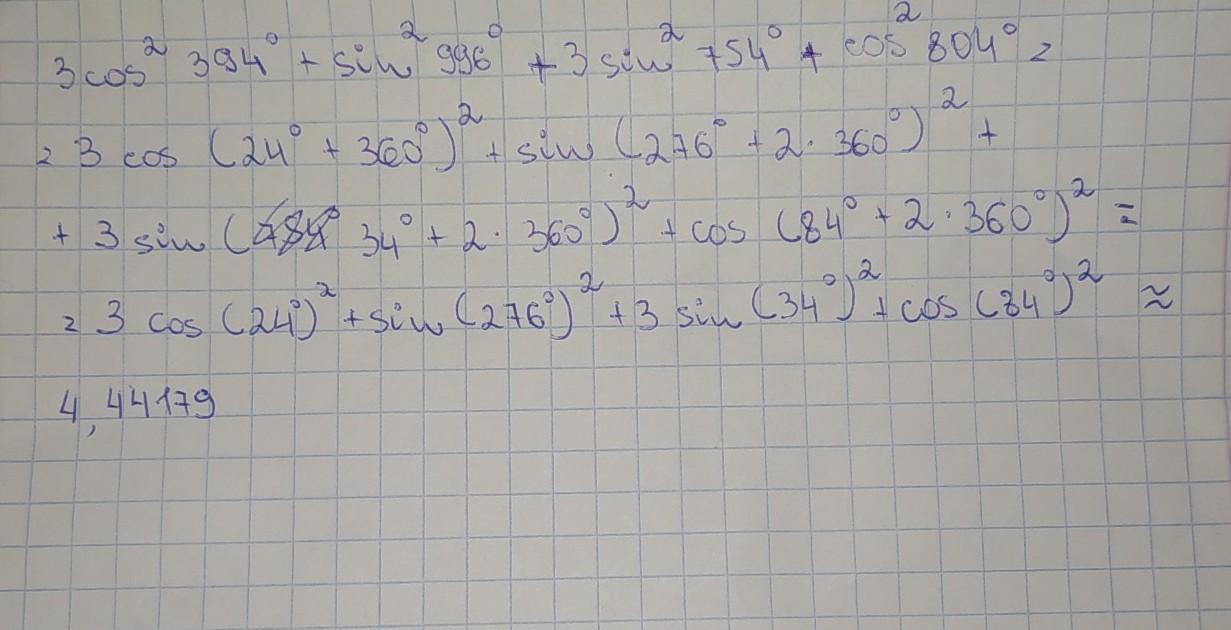 3 cos² 394° + sin² 996° + 3 sin² 754° + cos² 804° =
= 3 cos (24° + 360°)² + sin (276° + 2 · 360°)² +
+ 3 sin ( 34° + 2 · 360°)² + cos (84° + 2 · 360°)² =
= 3 cos (24°)² + sin (276°)² + 3 sin (34°)² + cos (84°)² ≈
4,44179